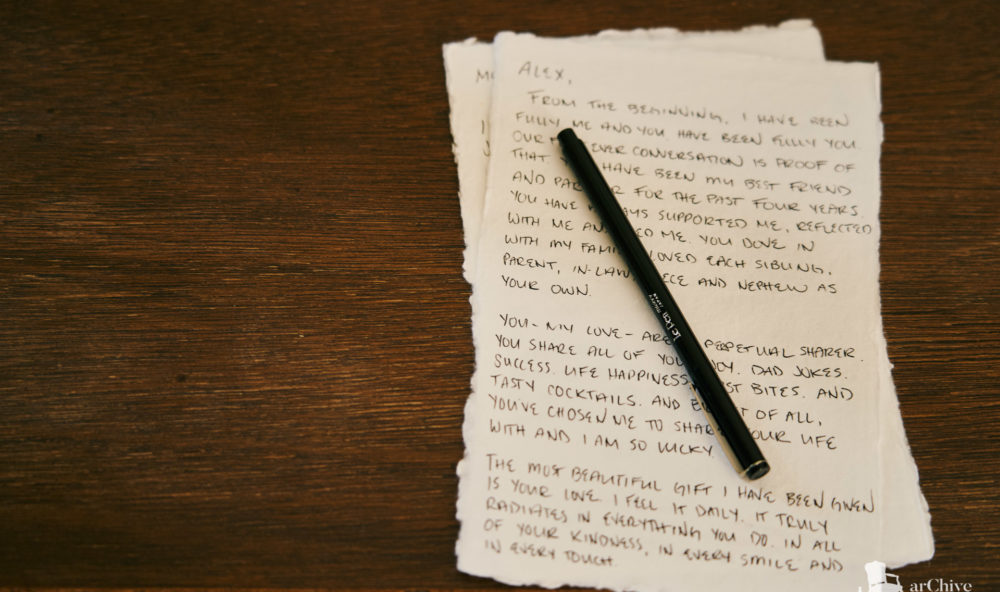 ALEX,
FROM THE BEGINNING, I HAVE BEEN
FULLY ME AND YOU HAVE BEEN FULLY YOU.
OUR EVER CONVERSATION IS PROOF OF
THAT. HAVE BEEN MY BEST FRIEND
AND FOR THE PAST FOUR YEARS.
YOU HAVE SUPPORTED ME, REFLECTED
WITH ME ME. YOU DOVE IN
WITH MY LOVED EACH SIBLING,
PARENT, IN-LAW, AND NEPHEW AS
YOUR OWN.
YOU - MY LOVE - ARE PERPETUAL SHARER.
YOU SHARE ALL OF DAD JOKES.
SUCCESS. LIFE HAPPINESS. BITES. AND
TASTY COCKTAILS. AND OF ALL,
YOU'VE CHOSEN ME TO SHARE YOUR LIFE
WITH AND I AM SO LUCKY
THE MOST BEAUTIFUL GIFT I HAVE BEEN GIVEN
IS YOUR LOVE. I FEEL IT DAILY. IT TRULY
RADIATES IN EVERYTHING YOU DO. IN ALL
OF YOUR KINDNESS, IN EVERY SMILE AND
IN EVERY TOUCH.
Le Pen
arChive